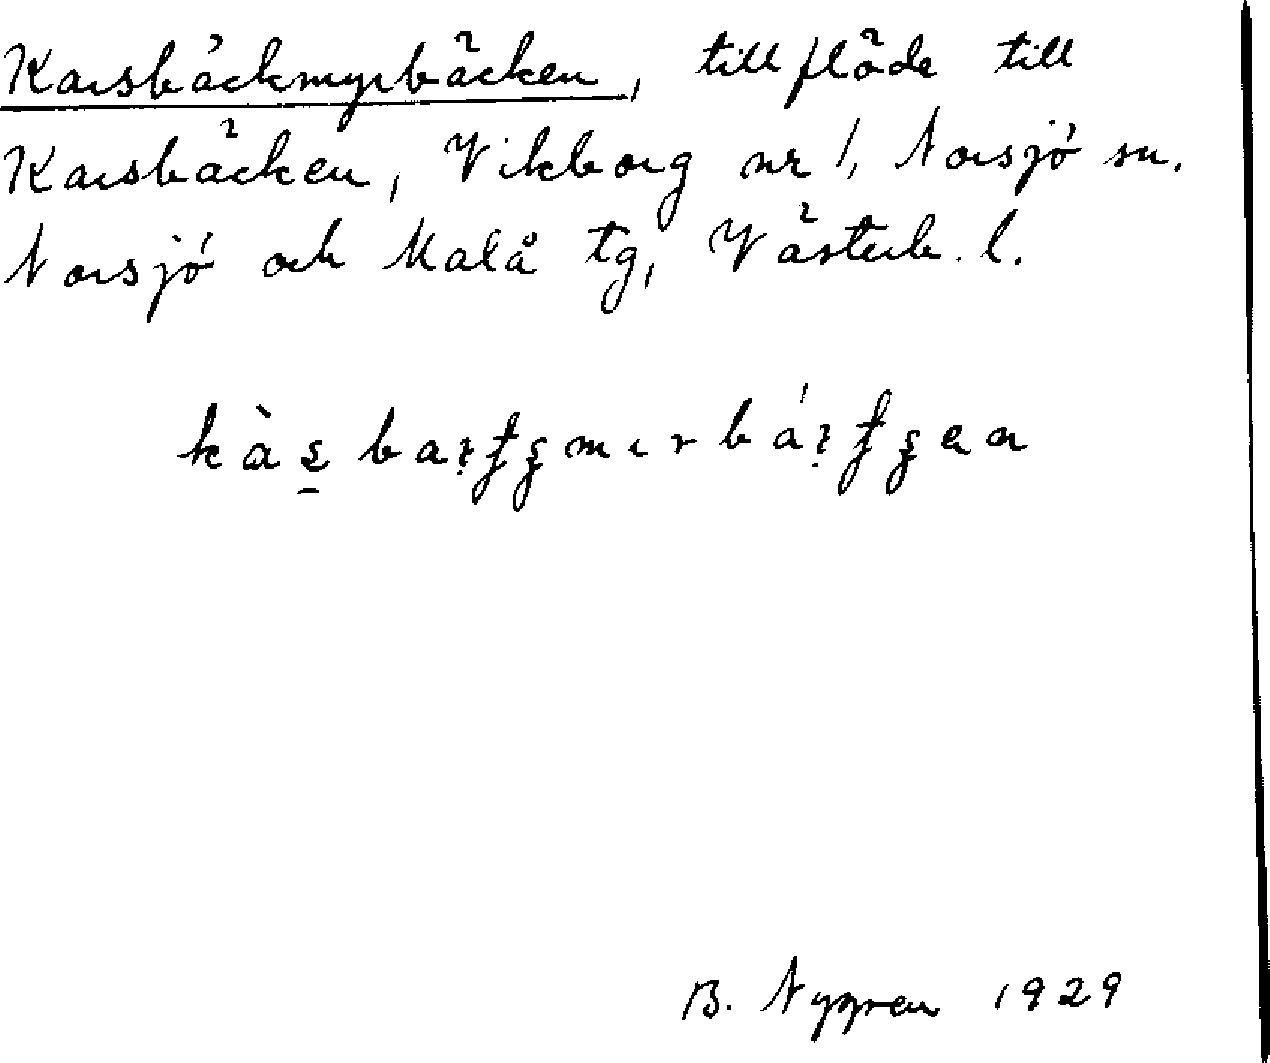 Karsbäckmyrbäcken, tillflöde till
Karsbäcken, Vikborg nr 1, Norsjö sn.
Norsjö och Malå tg, Västerb. l.
B. Nygren 1929